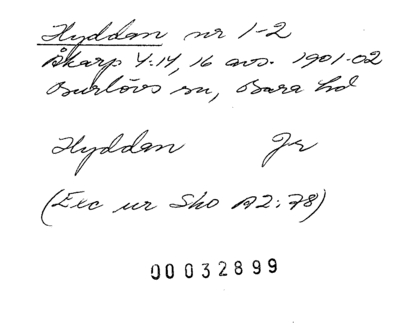 Hyddan nr 1-2
Åkarp 4:14, 16 avs. 1901-02
Burlövs sn, Bara hd
Hyddan Jr
(Exc ur Sko A2:78)
00032899